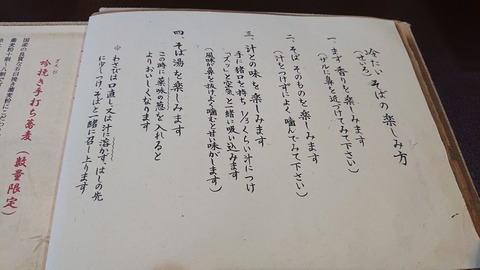 冷たいそばの楽しみ方
(せいろ)
一、まず香りを楽しみます
(ザルに鼻を近づけてみて下さい)
二、そばそのものを楽しみます
(汁をつけずによく噛んでみて下さい)
三、汁との味を楽しみます
手に猪口を持ち1/3くらい汁につけ
「ズズッ」と空気と一緒に吸い込みます
(風味が鼻を抜けよく噛むと甘味がします)
四、そば湯を楽しみます
この時に薬味の葱を入れると
よりおいしくなります
※わさびは口直し又は汁に溶かず、はしの先
に少しつけ、そばと一緒に召し上ります
吟挽き手打ち蕎麦(数量限定)
国産の良質な石臼挽き蕎麦粉に